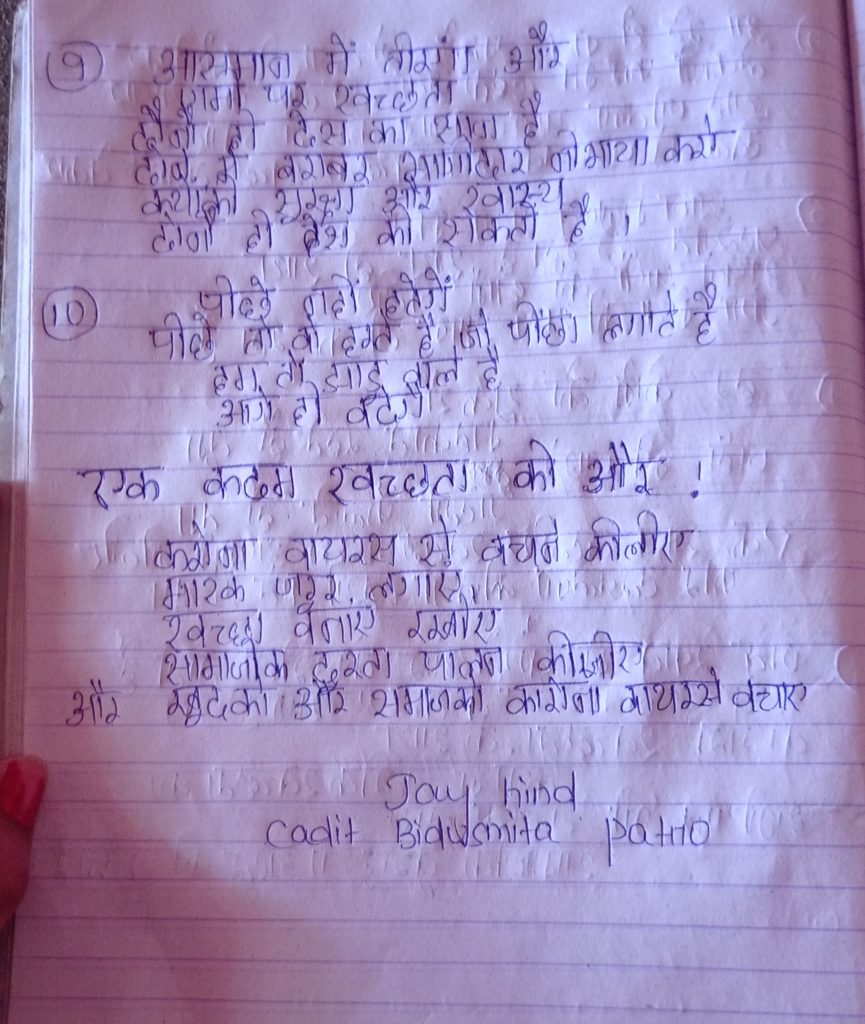 9 आसमान में तीरंगा और
जमी पर स्वच्छता
दोनो ही देस का सान है
दोनो में बराबर भागीदार नीभाया करो
क्याकी सुरक्षा और स्वास्थ्य
दोनो ही देश की शक्ती है ।
10 पीछे नहीं हटेगें
पीछे तो वो हटते है जो पोंछा लगाते है
हम तो झाडु वाले है
आगे ही बढेगें
एक कदम स्वच्छता की और !
करोना वायरस से बचने कीलीए
मास्क जरुर लगाए
स्वच्छता बनाए रखीए
सामाजीक दुरता पालन कीजीए
और खुदको और समाजको कारोना वायरसे बचाए
Jay hind
Cadit Bidusmita patro